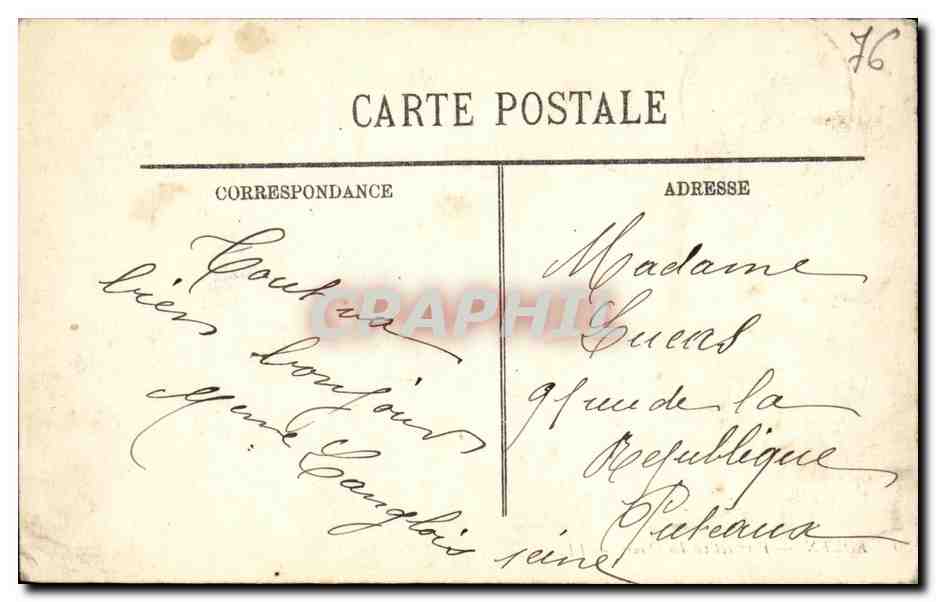 76
CARTE POSTALE
CORRESPONDANCE
Tout va
bien bonjour
Mme Langlois
ADRESSE
Madame
Lucas
91 rue de la
Republique
Puteaux
seine
CPRAPHIL